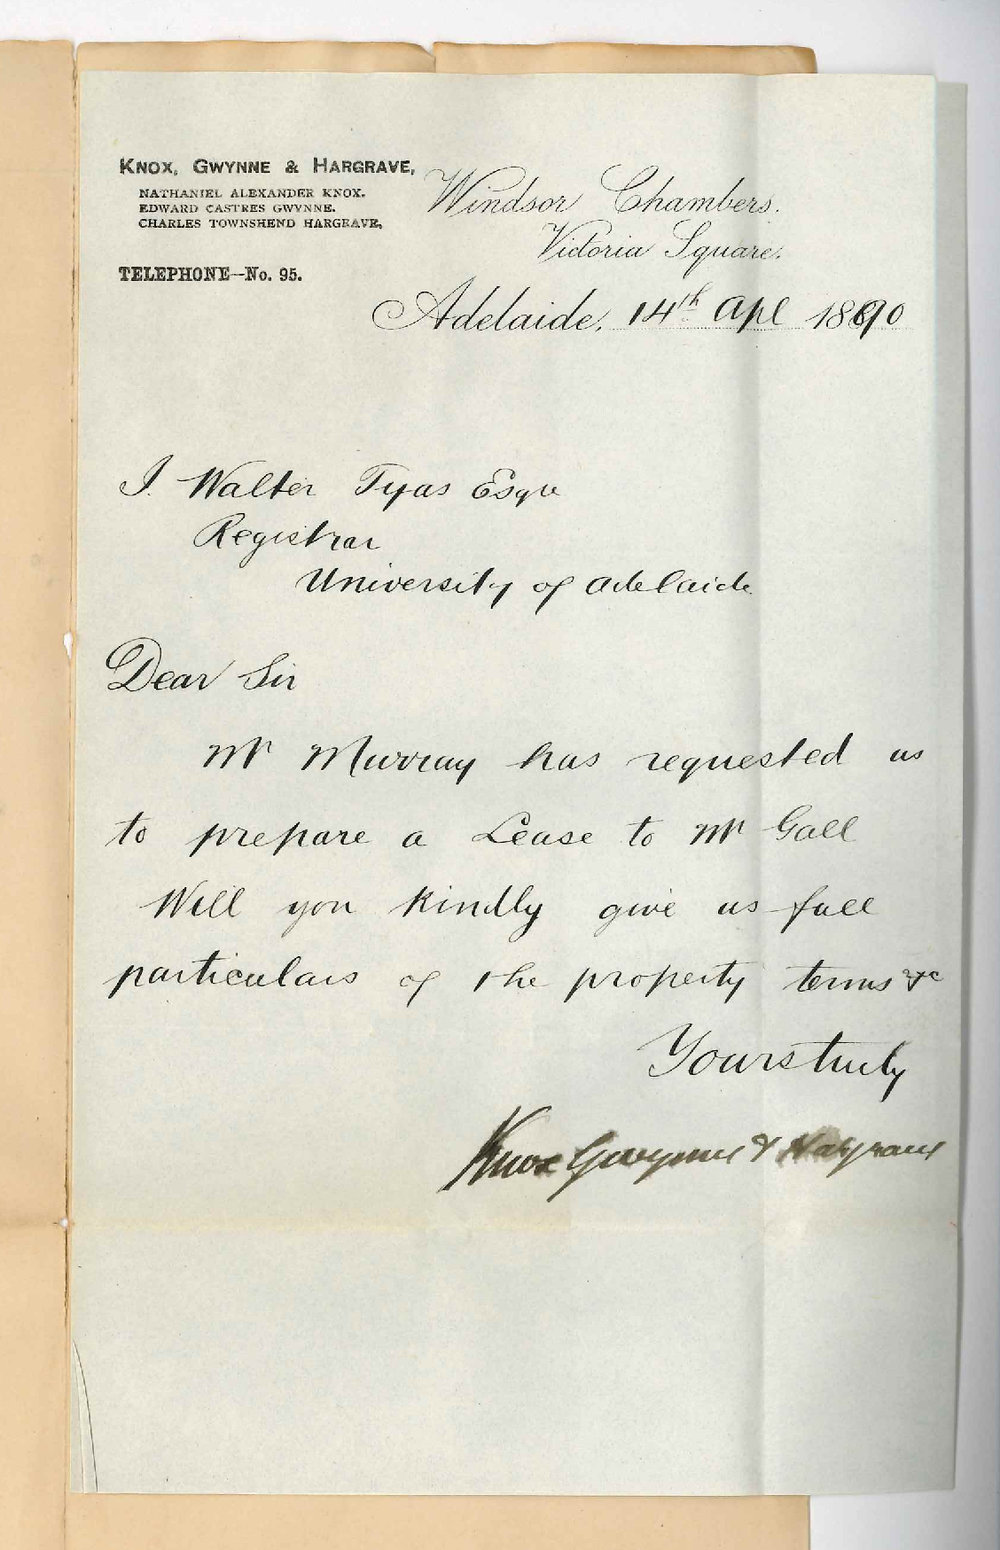 KNOX, GWYNNE & HARGRAVE,
NATHANIEL ALEXANDER KNOX.
EDWARD CASTRES GWYNNE.
CHARLES TOWNSHEND HARGRAVE,
TELEPHONE—No. 95.
Windsor Chambers.
Victoria Square.
Adelaide, 14th Apl 1890
J. Walter Tyas Esqre
Registrar
University of Adelaide
Dear Sir
Mr Murray has requested us
to prepare a Lease to Mr Gall
Will you kindly give us full
particulars of the property terms &c
Yours truly
Knox Gwynne & Hargrave